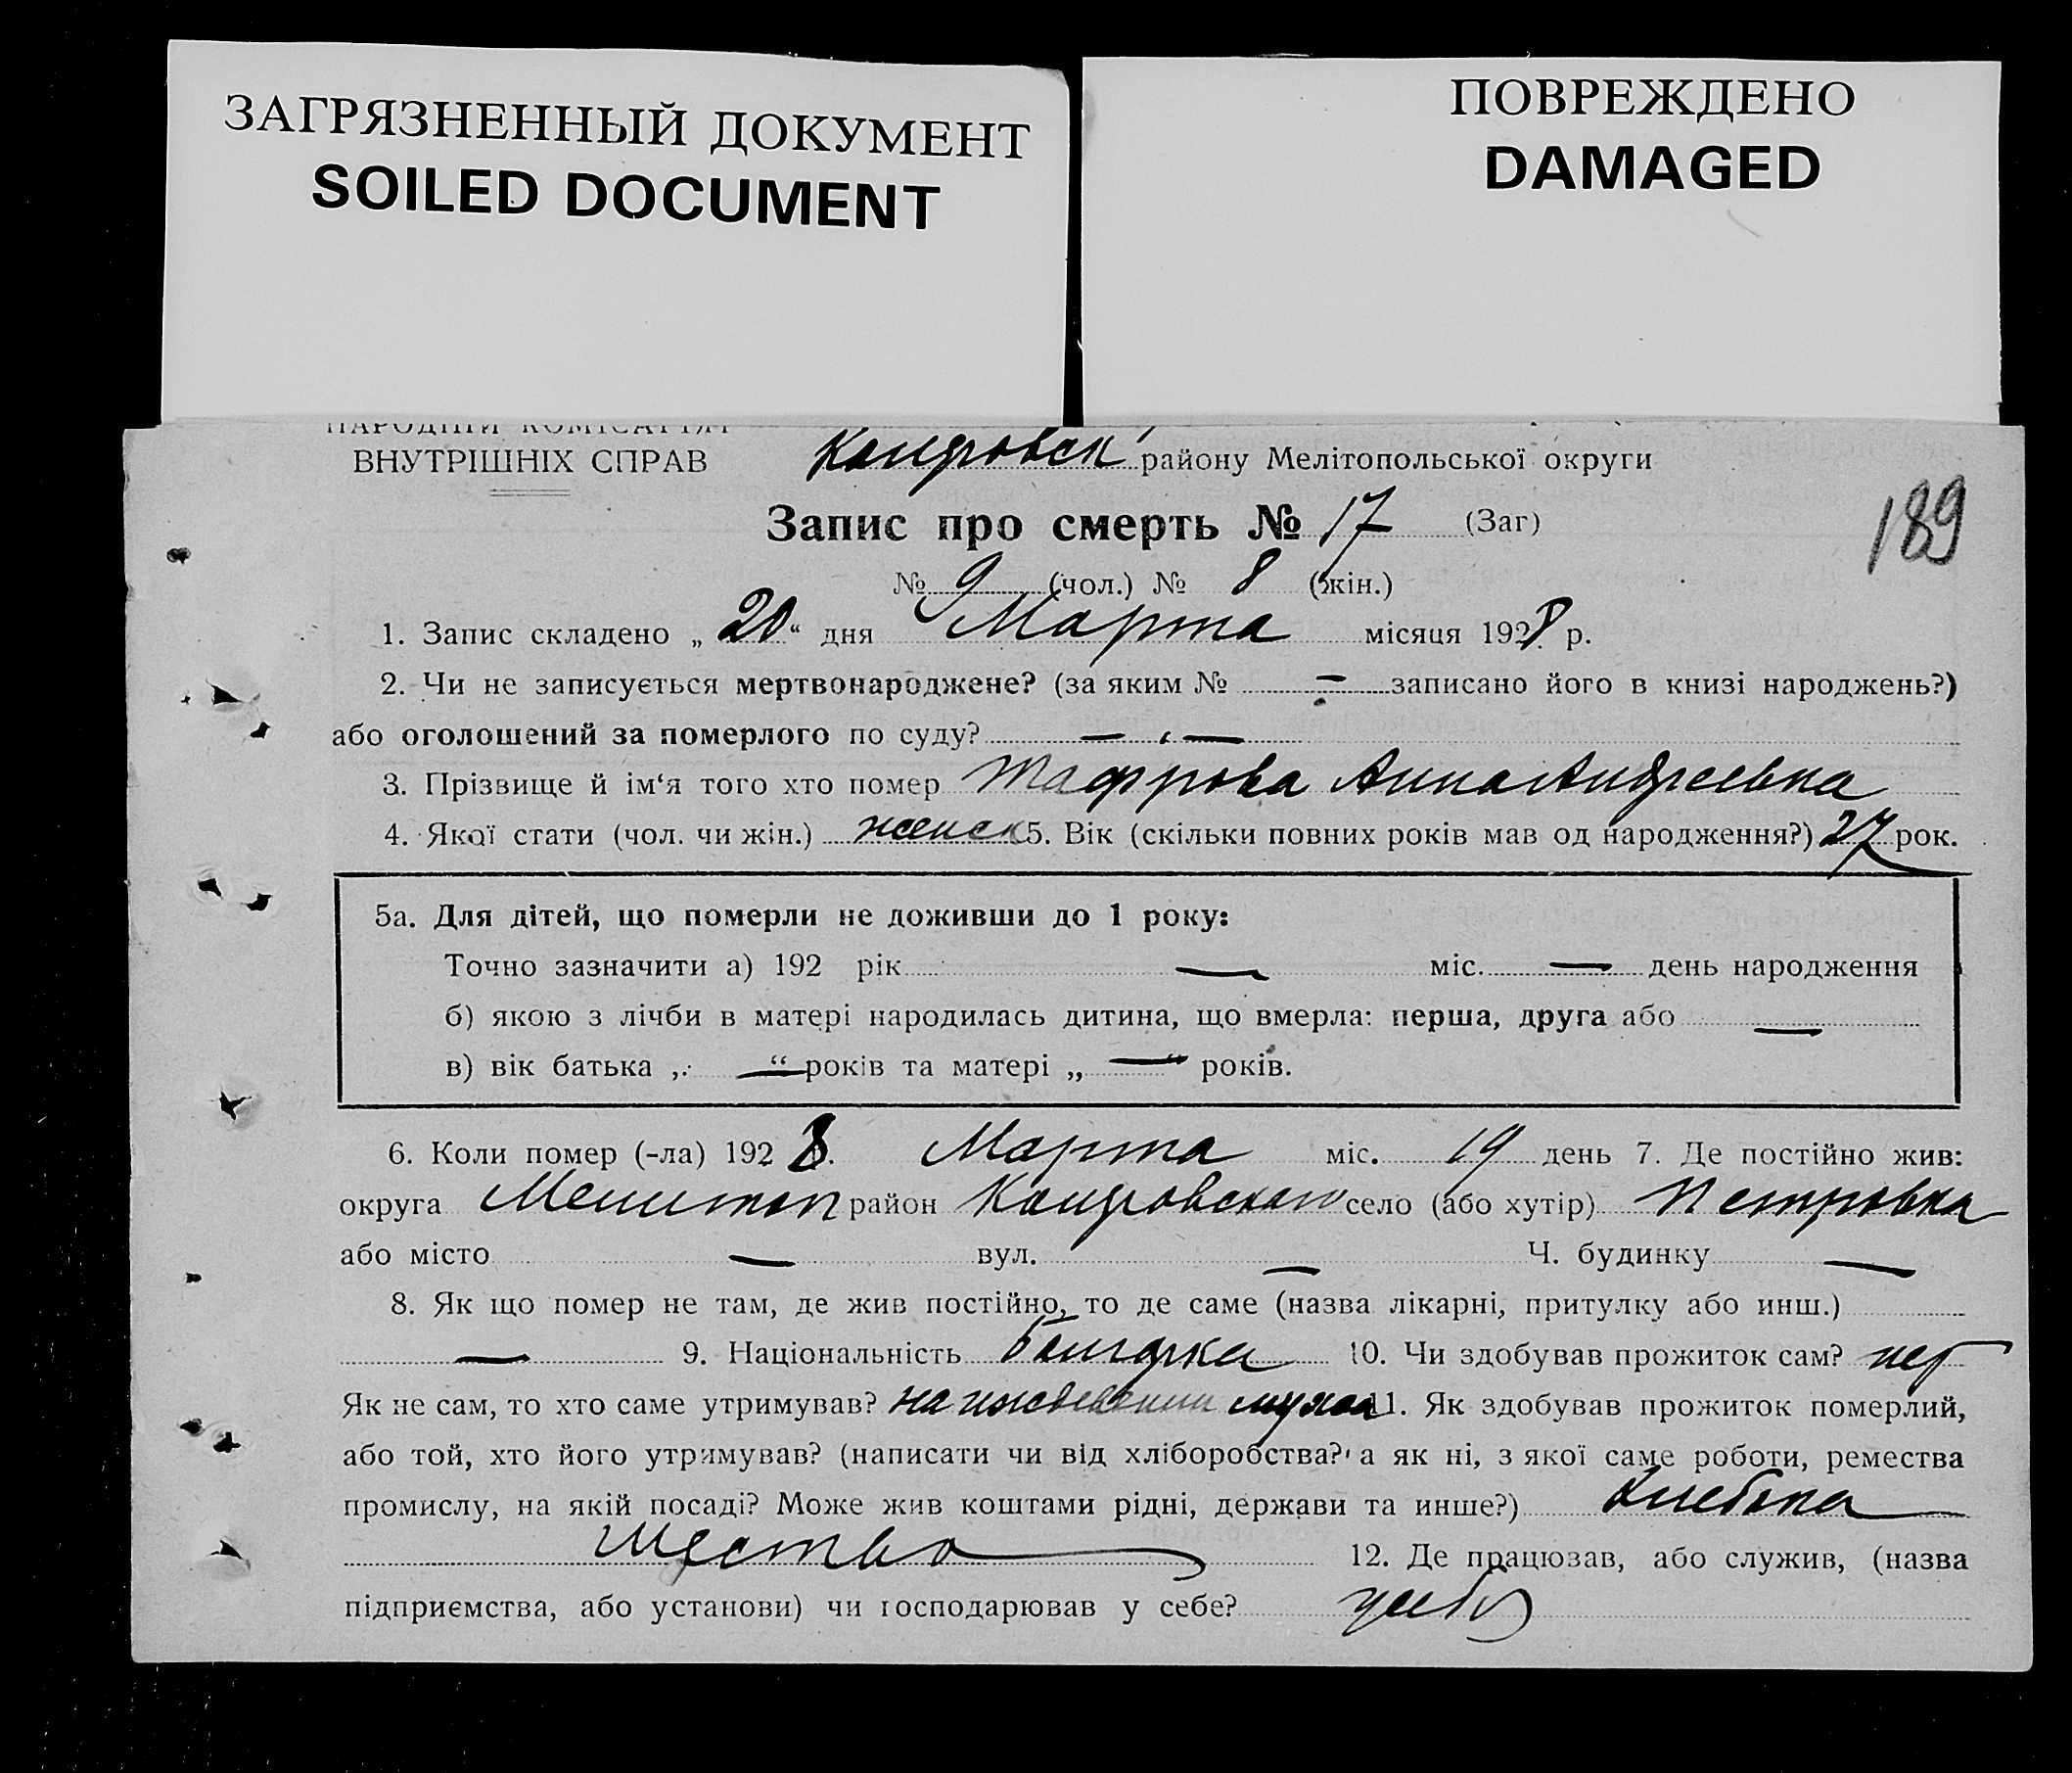 ЗАГРЯЗНЕННЫЙ ДОКУМЕНТ
SOILED DOCUMENT
ПОВРЕЖДЕНО
DAMAGED
НАРОДНІЙ КОМІСАРІЯТ
ВНУТРІШНІХ СПРАВ
району Мелітопольської округи
189
Запис про смерть № 17 (Заг)
№ 9 (чол.) № 8 (жін.)
1. Запис складено „ 20 “ дня Марта місяця 1928 р.
2. Чи не записується мертвонароджене? (за яким № — записано його в книзі народжень?)
або оголошений за померлого по суду? — „ —
3. Прізвище й ім‘я того хто помер Анна Андреевна
4. Якої стати (чол. чи жін.) женск 5. Вік (скільки повних років мав од народження?) 27 рок.
5а. Для дітей, що померли не доживши до 1 року:
Точно зазначити а) 192 рік — міс. — день народження
б) якою з лічби в матері народилась дитина, що вмерла: перша, друга або —
в) вік батька „ — “ років та матері „ — “ років.
6. Коли помер (-ла) 1928. Марта міс. 19 день 7. Де постійно жив:
округа Мелитоп район село (або хутір) Петровка
або місто — вул. — Ч. будинку —
8. Як що помер не там, де жив постійно, то де саме (назва лікарні, притулку або инш.)
— 9. Національність Болгарка 10. Чи здобував прожиток сам? нет
Як не сам, то хто саме утримував? на иждевении мужа 11. Як здобував прожиток померлий,
або той, хто його утримував? (написати чи від хліборобства? а як ні, з якої саме роботи, ремества
промислу, на якій посаді? Може жив коштами рідні, держави та инше?) Хлебопа
шество 12. Де працював, або служив, (назва
підприємства, або установи) чи господарював у себе? у себя